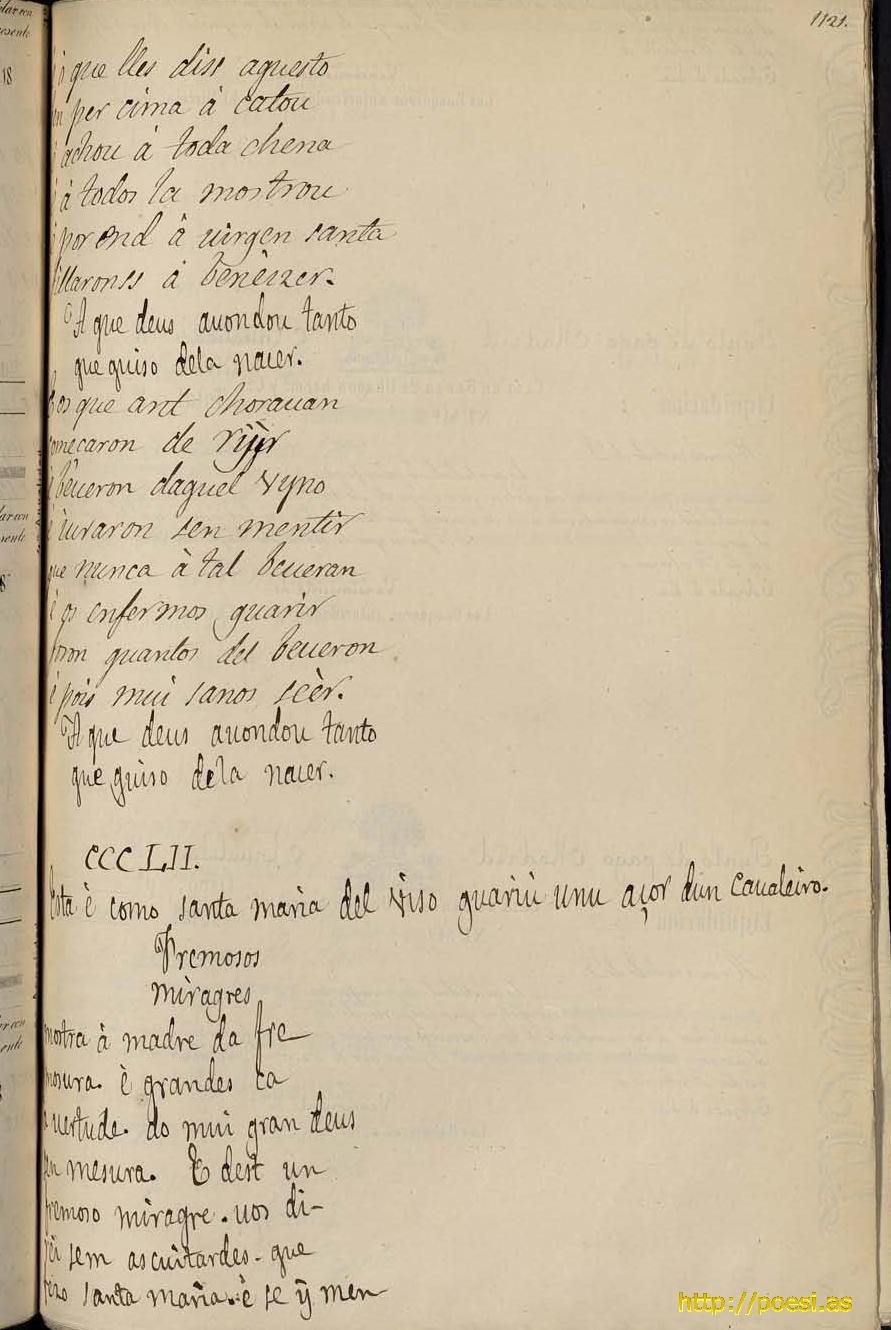 1121.
que lles diss aquesto
per cima á catou
achou á toda chena
á todos la mostrou
porend á uirgen santa
fillaronss á benèizer.
A que deus auondou tanto
que quiso dela nacer.
os que ant chorauan
começaron de rijir
è beueron daquel vyno
è iuraron sen mentir
que nunca à tal beueran
è os enfermos guarir
foron quantos del beueron
è pois mui sanos seèr.
A que deus auondou tanto
que quiso dela nacer.
CCCLII.
Esta è como santa maria del viso guariù unu açor dun caualeiro.
Fremosos
miragres
mostra à madre da fre
mosura. è grandes ca
a uertude. do mui gran deus
sen mesura. E dest un
fremoso miragre. uos di-
rei sem ascuitardes. que
fezo santa maria. è se ỹ men
http://poesi.as